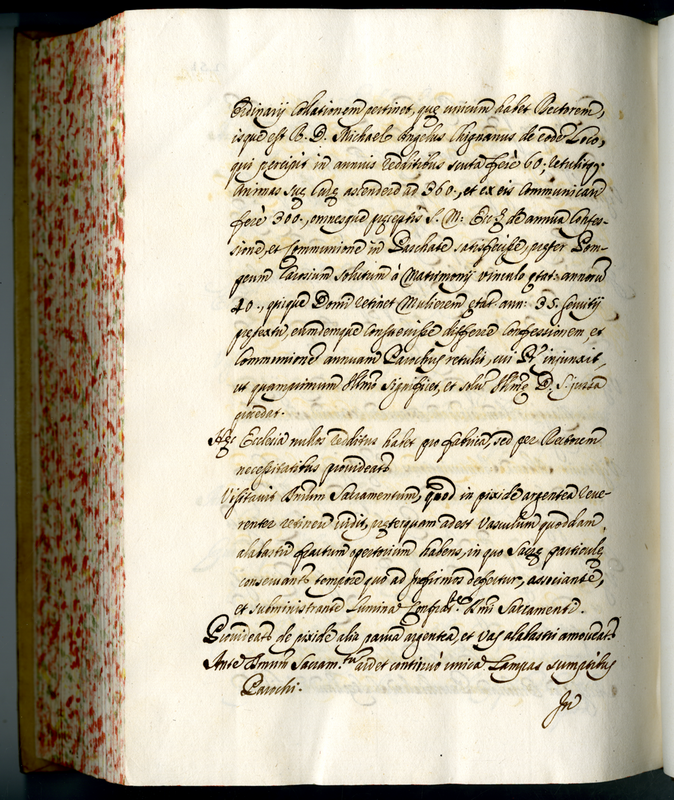 Ordinarij Collationem pertinet, quę unicum habet Rectorem,
isque est R. D. Michael Angelus Chignanus de eodē Loco,
qui percipit in annuis redditibus scuta ferè 60, retulitq;
Animas suę Curę ascendere ad 360., et ex eis Communicari
ferè 300., omnesque pręceptis S. M. Ecc.ę de annua Confes-
sione, et Communione in Paschate satisfecisse, pręter Pom-
peum solutum à Matrimonij vinculo ętat: annorū
40., quique Domi retinet Mulierem ętat. ann: 35. seruitij
prętextu, eundemque consueuisse differre Confessionem, et
Communionē annuam Parochus retulit, cui Ill. iniunxit,
ut quamprimum Illmo significet, et Illmę D. S. iussa
procedat.
Hęc Ecclesia nullos redditus habet pro fabrica, sed per Rectorem
necessitatibus prouideatr
Visitauit Smum Sacramentum, quod in pixide argentea reue-
renter retineri uidit, pręterquam adest Vasculum quoddam
alabastri fractum opertorium habens, in quo Sacrę particulę
conseruantr tempore quo ad infirmos defertur, associante,
et subministrante Lumina Confrat.e Smi Sacramenti.
Prouideatr de pixide alia parua argentea, et Vas alabastri amoueatr
Ante Smum Sacram.tum ardet continuò unica Lampas sumptibus
Parochi.
In